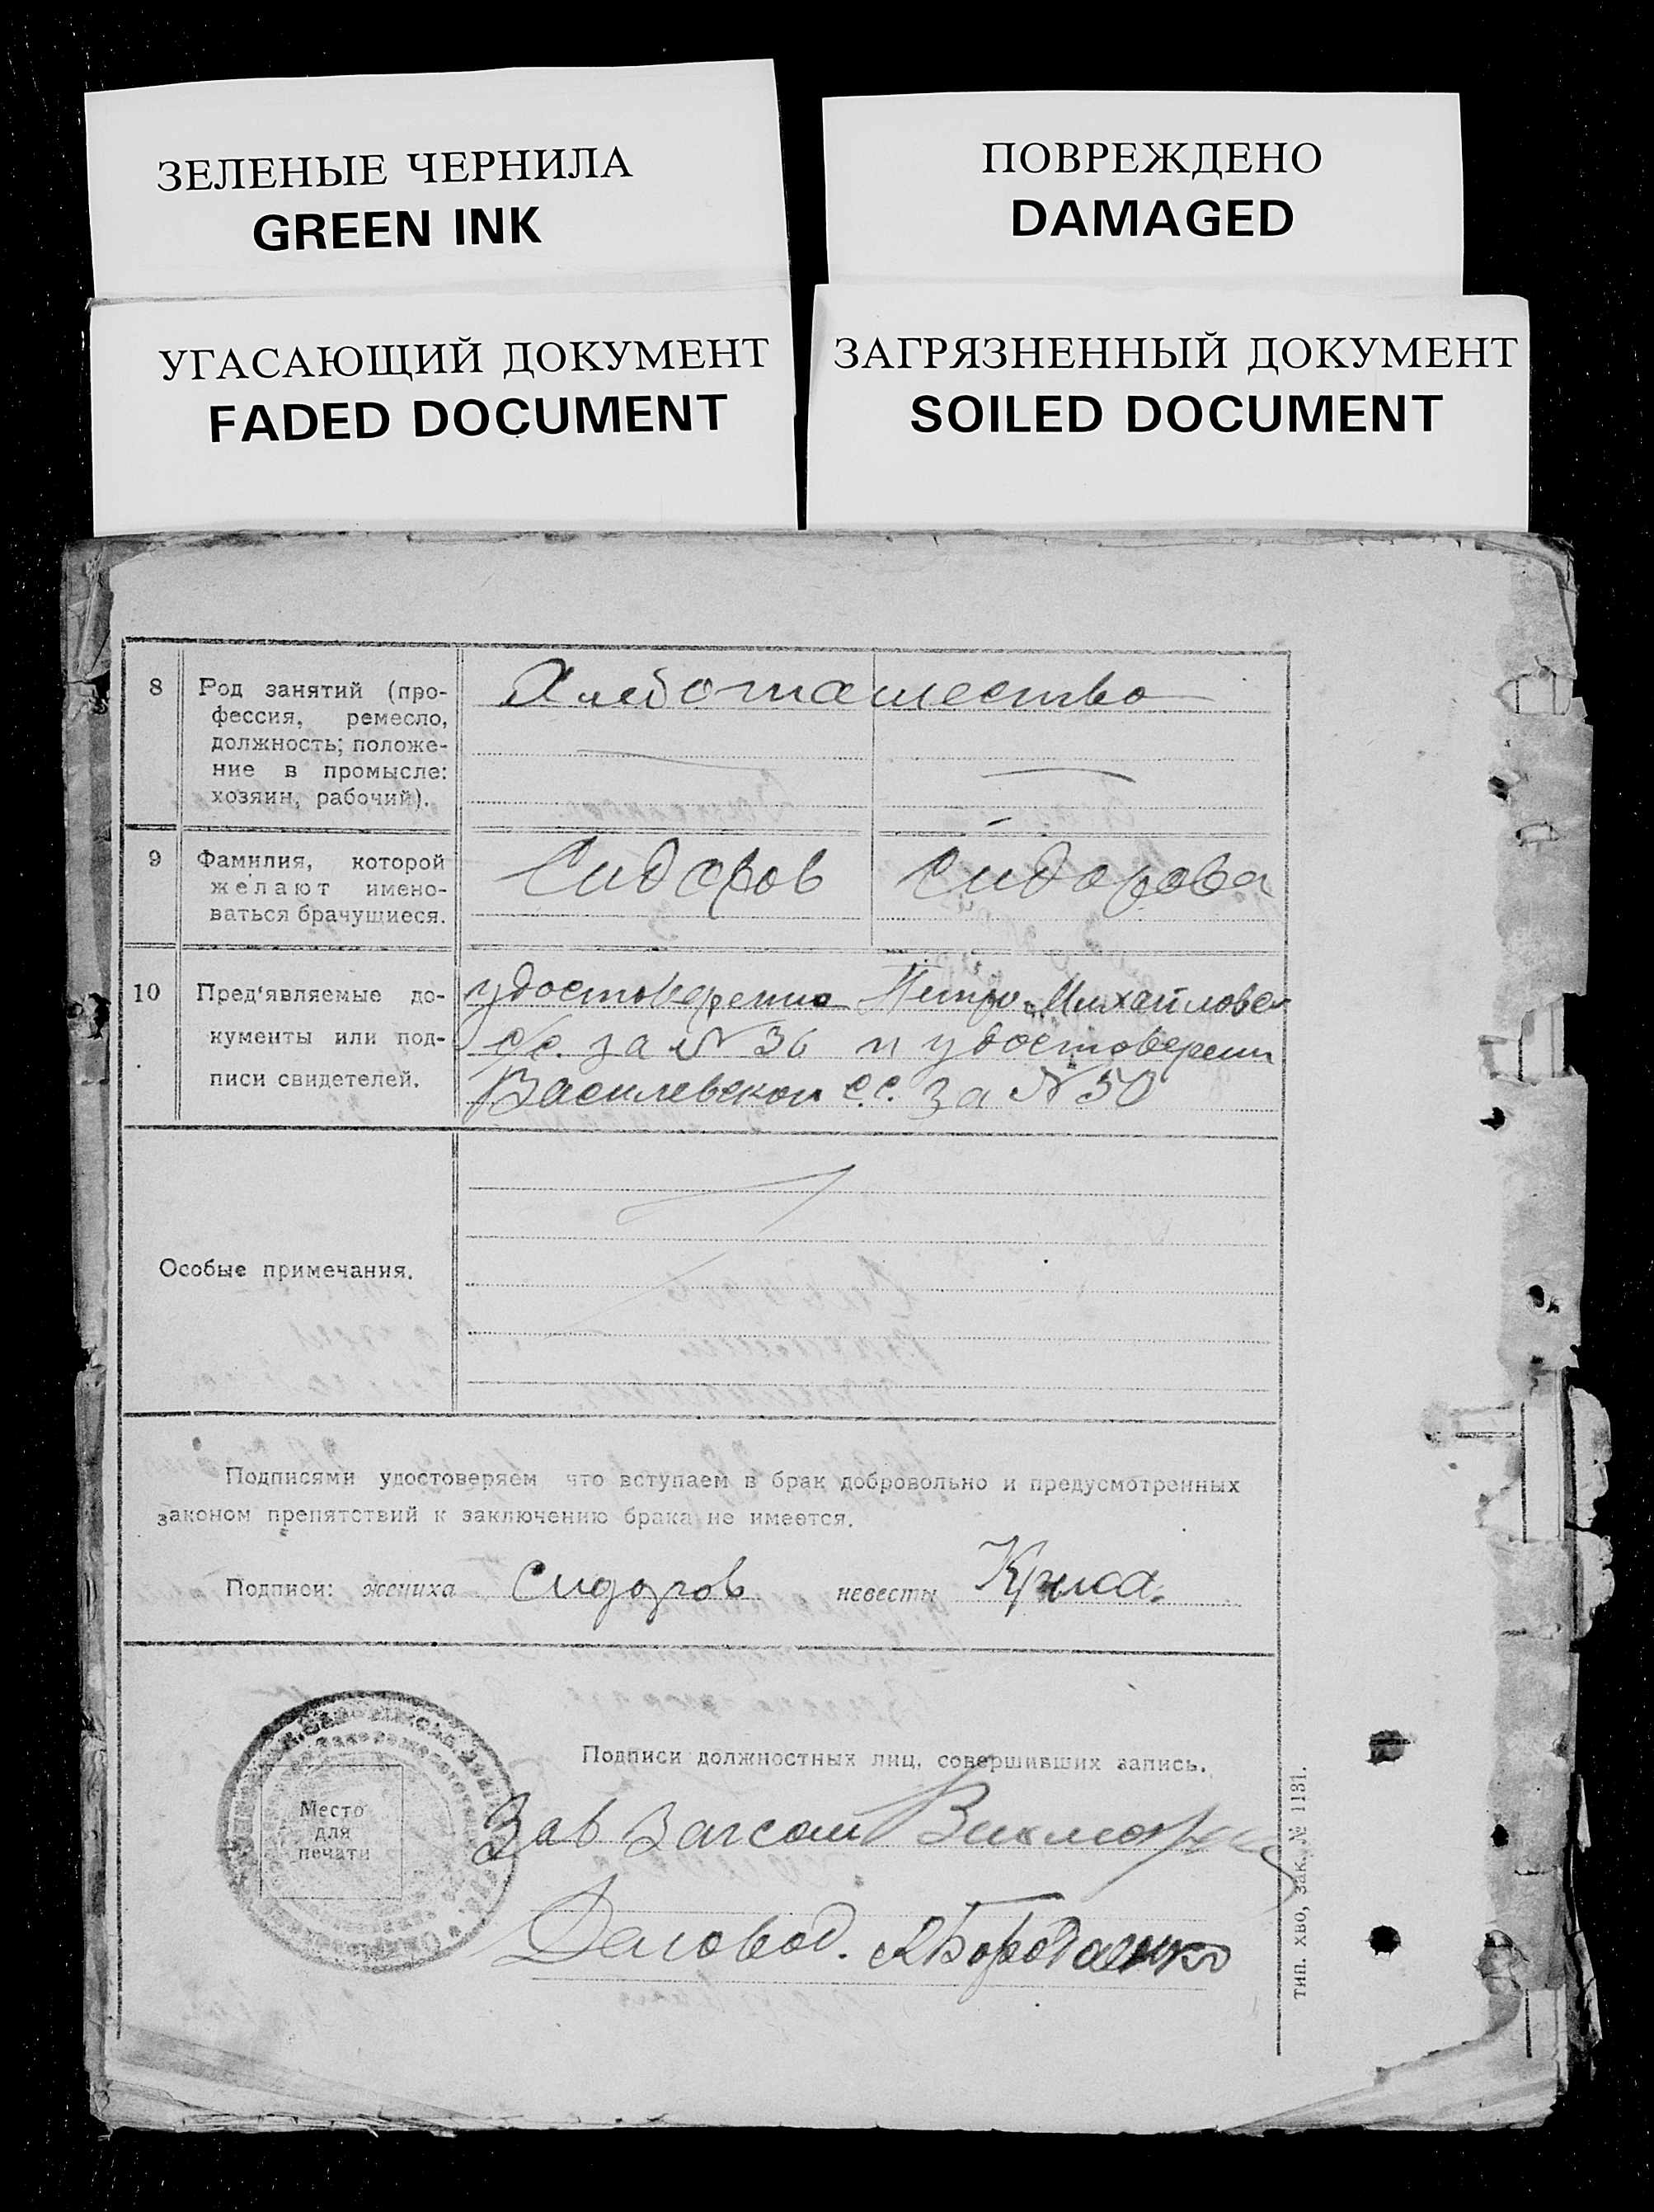 ЗЕЛЕНЫЕ ЧЕРНИЛА
GREEN INK
ПОВРЕЖДЕНО
DAMAGED
УГАСАЮЩИЙ ДОКУМЕНТ
FADED DOCUMENT
ЗАГРЯЗНЕННЫЙ ДОКУМЕНТ
SOILED DOCUMENT
8 Род занятий (про-
фессия, ремесло,
должность; положе-
ние в промысле:
хозяин, рабочий).
Хлебопашество
9 Фамилия, которой
желают имено-
ваться брачущиеся.
Сидоров Сидорова
10 Пред'являемые до-
кументы или под-
писи свидетелей.
удостоверение Петро-Михайловск
с/с. за № 36 и удостоверени
Василевской с.с. за № 50
Особые примечания.
Подписями удостоверяем что вступаем в брак добровольно и предусмотренных
законом препятствий к заключению брака не имеется.
Подписи: жениха Сидоров невесты
Место
для
печати
Подписи должностных лиц, совершивших запись.
Зав Загсом
Деловод.
тип. ХВО, зак. № 1131.